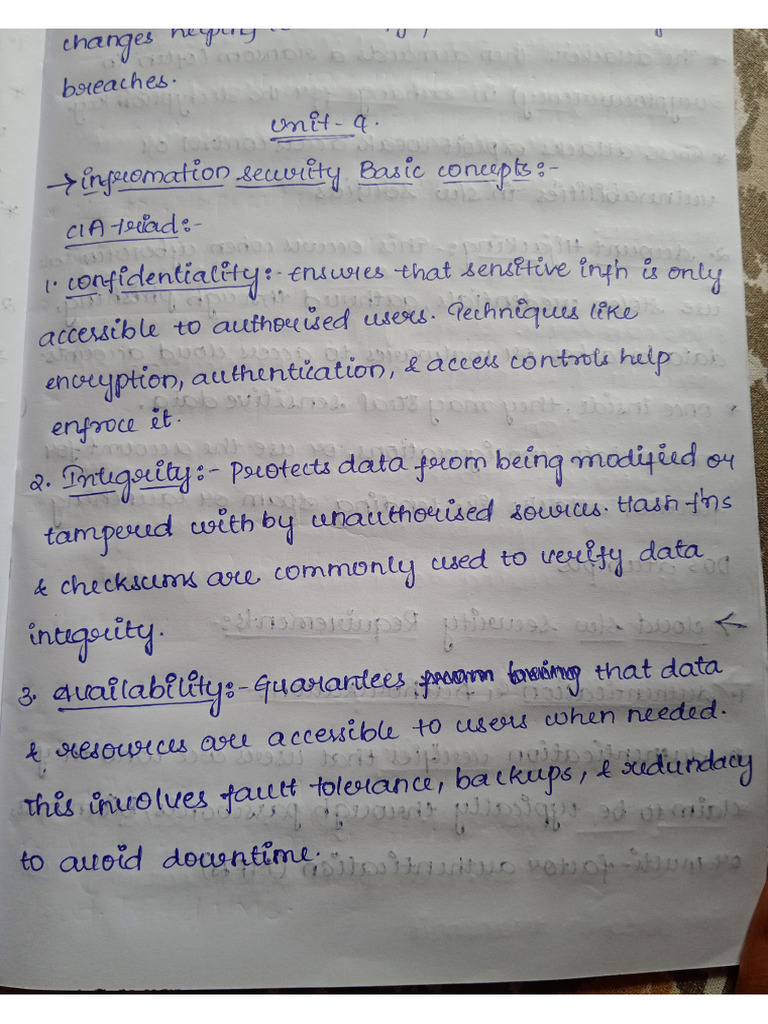 changes helping
breaches.
Unit-4.
→ infromation security Basic concepts:-
CIA triad:-
1. confidentiality:- ensures that sensitive infn is only
accessible to authorised users. Techniques like
encryption, authentication, & access controls help
enfroce it.
2. Integrity:- Protects data from being modified or
tampered with by unauthorised sources. Hash f'ns
& checksums are commonly used to verify data
integrity.
3. Availability:- Guarantees that data
& resources are accessible to users when needed.
This involves fault tolerance, backups, & redundacy
to avoid downtime.